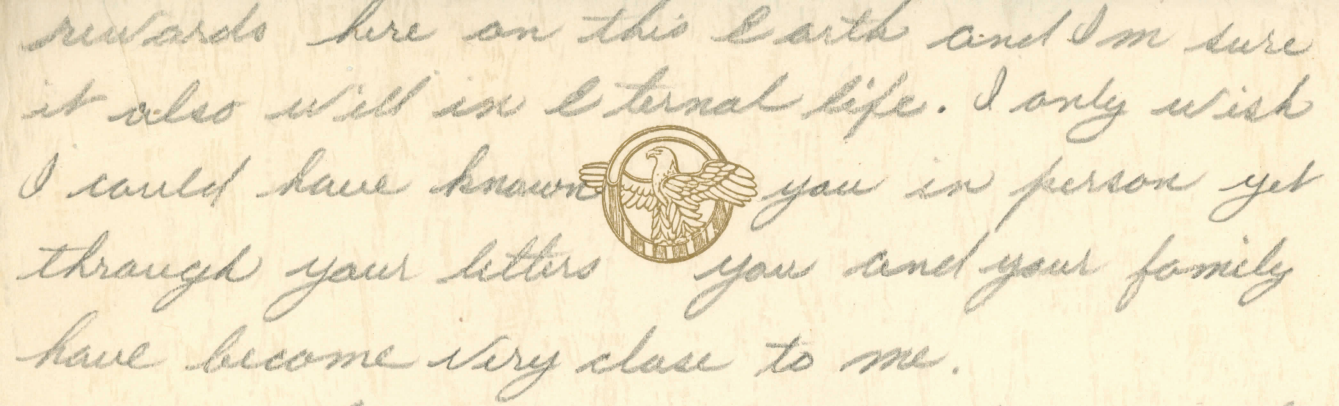 rewards here on this Earth and I'm sure
it also will in Eternal life. I only wish
I could have known you in person yet
through your letters you and your family
have become very close to me.